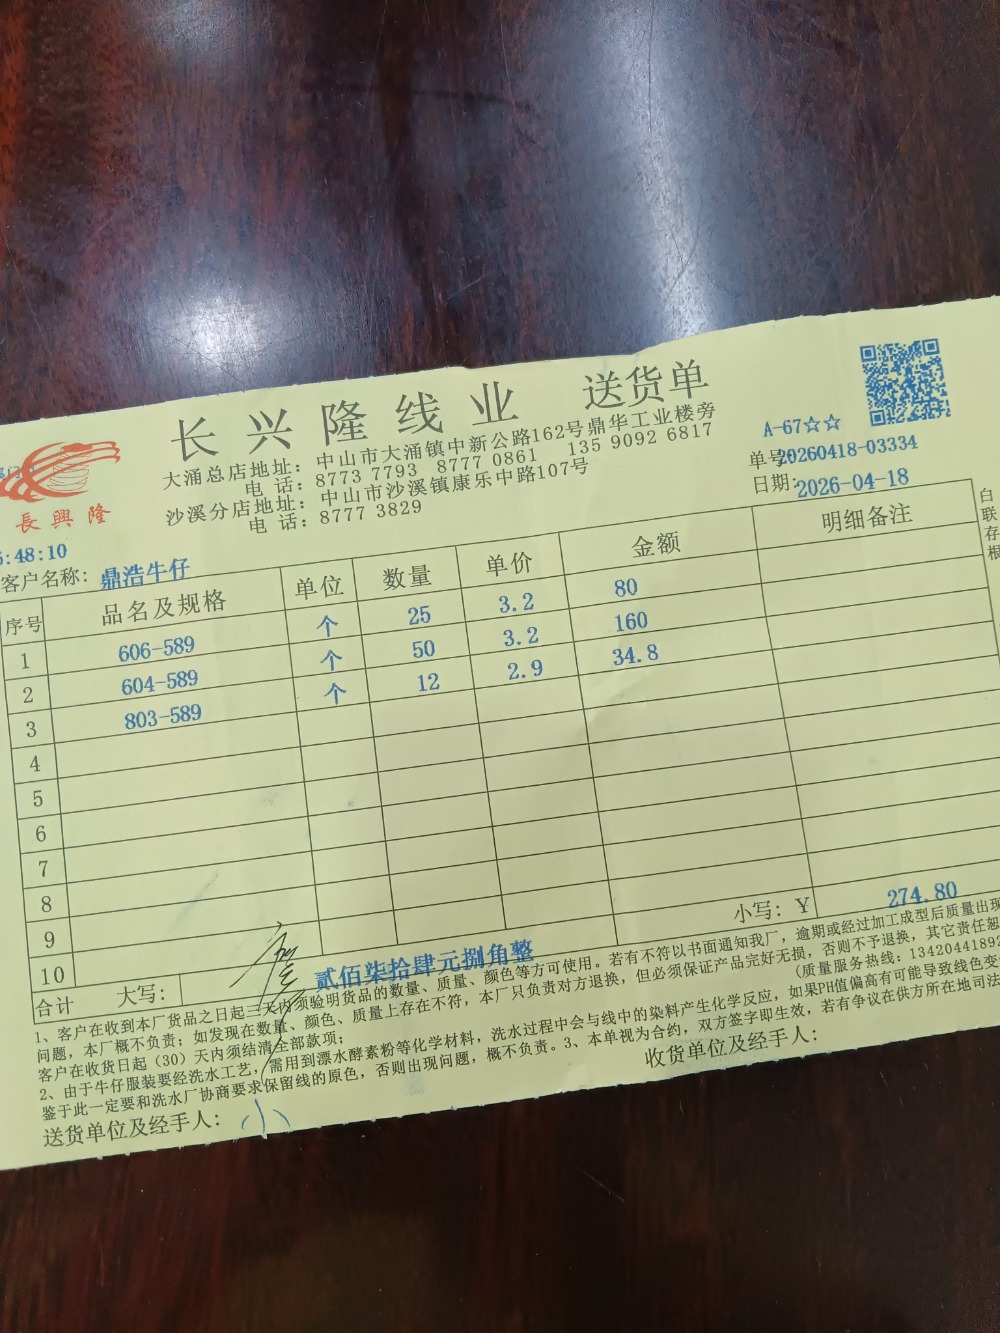 长兴隆线业 送货单
大涌总店地址：中山市大涌镇中新公路162号鼎华工业楼旁
电 话：8773 7793 8777 0861 135 9092 6817
沙溪分店地址：中山市沙溪镇康乐中路107号
电 话：8777 3829
長興隆
A-67☆☆
单号:20260418-03334
日期:2026-04-18
:48:10
客户名称：鼎浩牛仔
序号 品名及规格 单位 数量 单价 金额 明细备注
1 606-589 个 25 3.2 80
2 604-589 个 50 3.2 160
3 803-589 个 12 2.9 34.8
4
5
6
7
8
9
10
小写：Y 274.80
合计 大写：贰佰柒拾肆元捌角整
1、客户在收到本厂货品之日起三天内须验明货品的数量、质量、颜色等方可使用。若有不符以书面通知我厂，逾期或经过加工成型后质量出现
问题，本厂概不负责；如发现在数量、颜色、质量上存在不符，本厂只负责对方退换，但必须保证产品完好无损，否则不予退换，其它责任恕
客户在收货日起（30）天内须结清全部款项；
(质量服务热线：1342044189
2、由于牛仔服装要经洗水工艺，需用到漂水酵素粉等化学材料，洗水过程中会与线中的染料产生化学反应，如果PH值偏高有可能导致线色变
鉴于此一定要和洗水厂协商要求保留线的原色，否则出现问题，概不负责。3、本单视为合约，双方签字即生效，若有争议在供方所在地司法
送货单位及经手人：小
收货单位及经手人：
白联存根